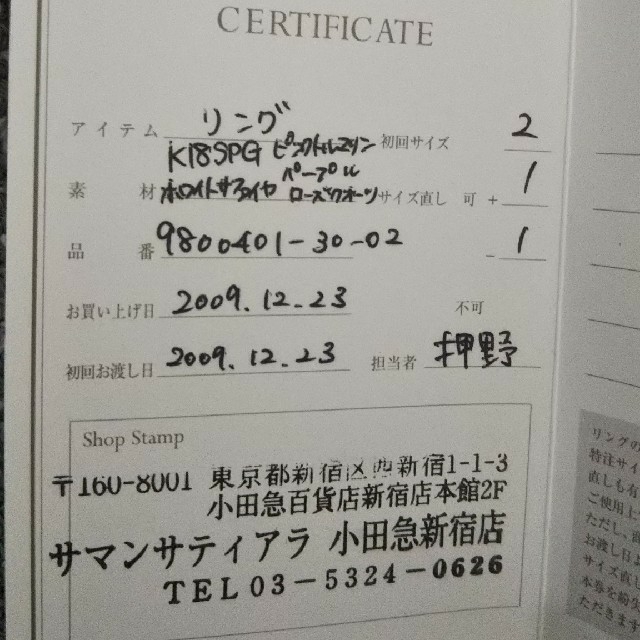 CERTIFICATE
アイテム リング 初回サイズ 2
K18SPG ピンクトルマリン
パープル
素材 ホワイトサファイヤ ローズクオーツ サイズ直し 可 + 1
品番 9800401-30-02 - 1
お買い上げ日 2009.12.23 不可
初回お渡し日 2009.12.23 担当者 押野
Shop Stamp
〒160-8001 東京都新宿区西新宿1-1-3
小田急百貨店新宿店本館2F
サマンサティアラ 小田急新宿店
TEL 03-5324-0626
リングの
特注サイ
直しも有
ご使用上
ただし、
お渡し日よ
サイズ直
本巻を
ただきま